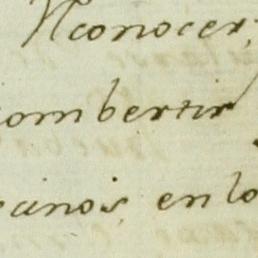 Rconocer,
combertir
cinos, en lo